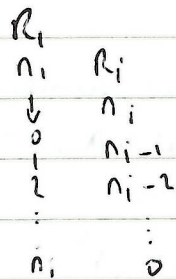 R₁
n₁ Rⱼ
↓ nⱼ
0
1 nⱼ-1
2 nⱼ-2
⋮ ⋮
nᵢ 0